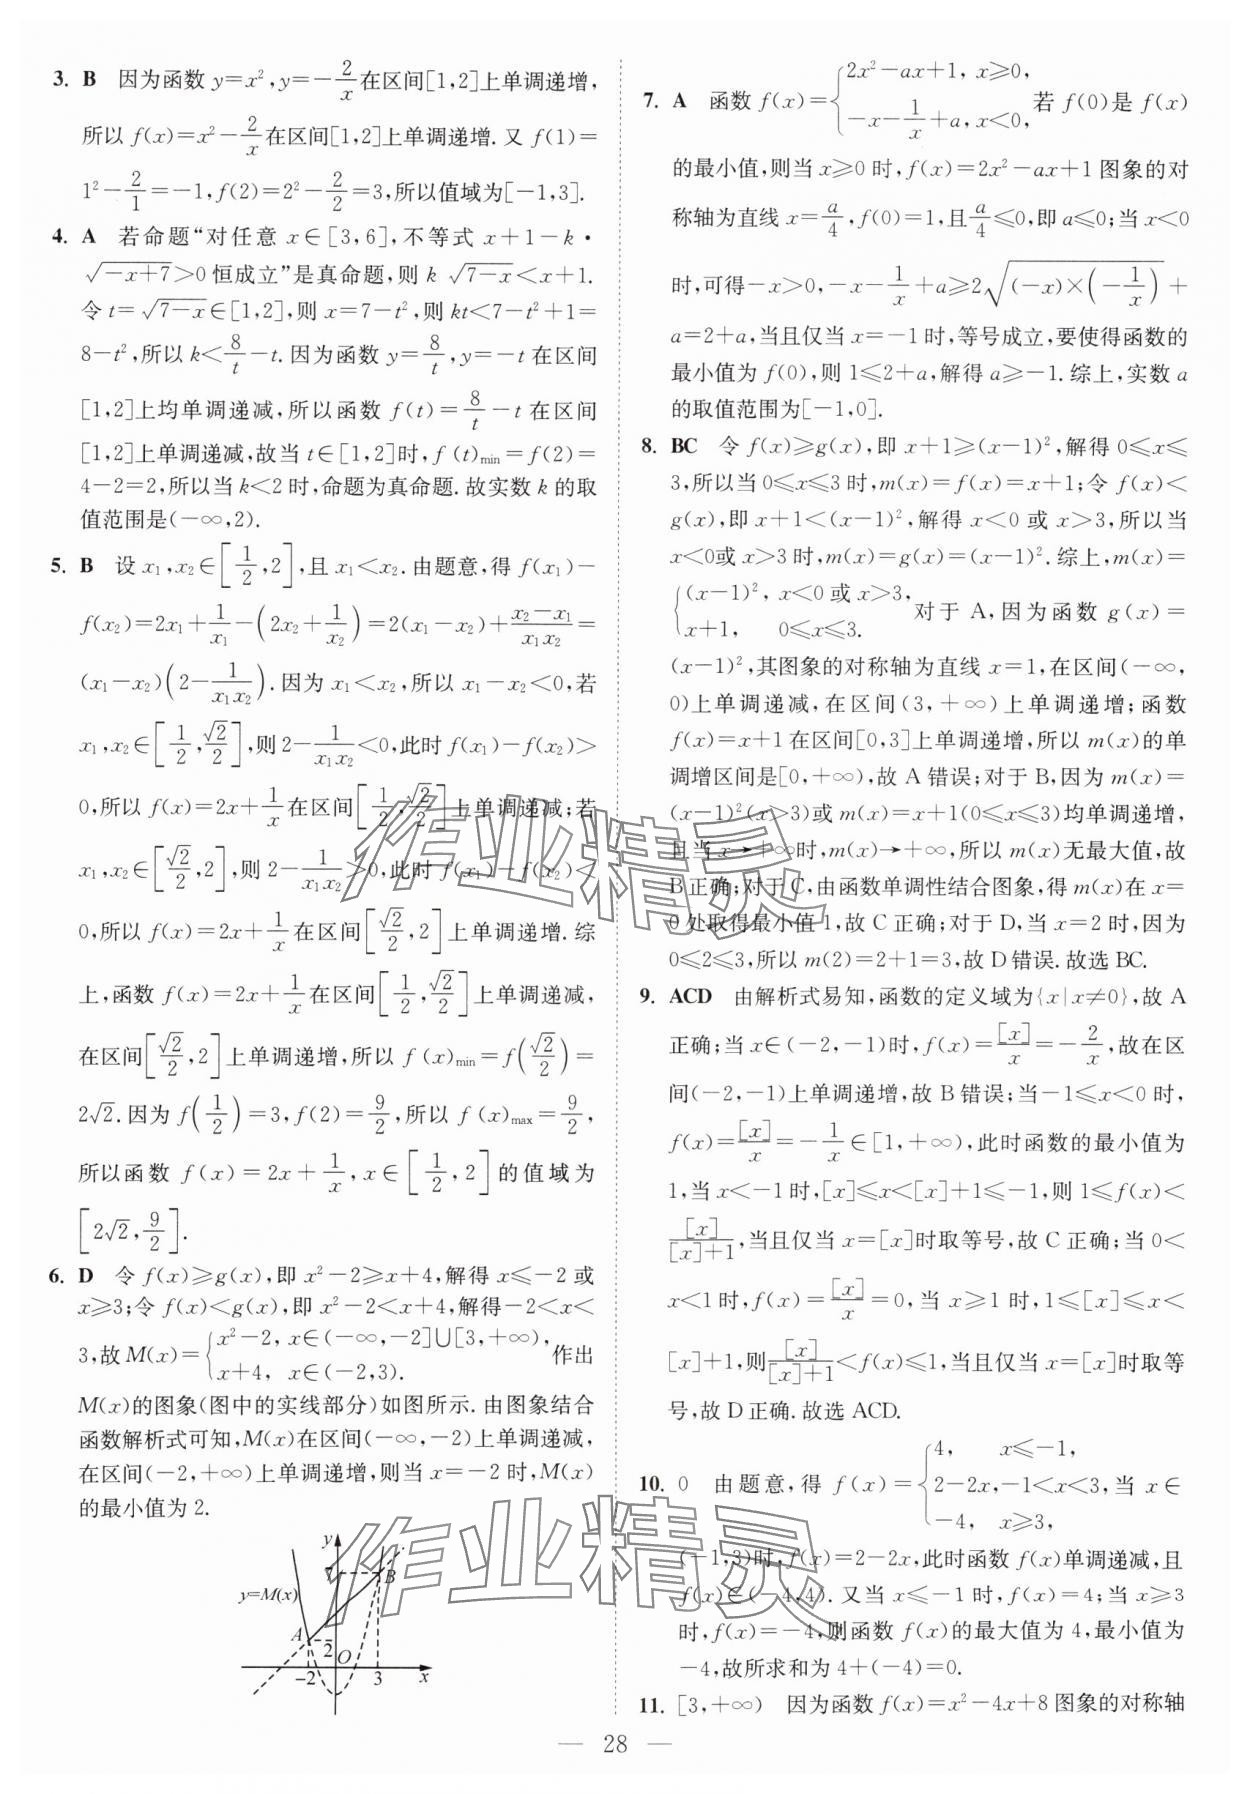 3. B 因为函数 y=x²,y=-2/x在区间[1,2]上单调递增,
所以 f(x)=x²-2/x在区间[1,2]上单调递增.又 f(1)=
1²-2/1=-1,f(2)=2²-2/2=3,所以值域为[-1,3].
4. A 若命题“对任意 x∈[3,6],不等式 x+1-k·
√(-x+7)>0恒成立”是真命题,则 k √(7-x)<x+1.
令 t=√(7-x)∈[1,2],则 x=7-t²,则 kt<7-t²+1=
8-t²,所以 k<8/t-t.因为函数 y=8/t,y=-t 在区间
[1,2]上均单调递减,所以函数 f(t)=8/t-t 在区间
[1,2]上单调递减,故当 t∈[1,2]时,f(t)min=f(2)=
4-2=2,所以当 k<2 时,命题为真命题.故实数 k 的取
值范围是(-∞,2).
5. B 设 x₁,x₂∈[1/2,2],且 x₁<x₂.由题意,得 f(x₁)-
f(x₂)=2x₁+1/x₁-(2x₂+1/x₂)=2(x₁-x₂)+(x₂-x₁)/(x₁x₂)=
(x₁-x₂)(2-1/(x₁x₂)).因为 x₁<x₂,所以 x₁-x₂<0,若
x₁,x₂∈[1/2,√2/2],则 2-1/(x₁x₂)<0,此时 f(x₁)-f(x₂)>
0,所以 f(x)=2x+1/x在区间[1/2,√2/2]上单调递减;若
x₁,x₂∈[√2/2,2],则 2-1/(x₁x₂)>0,此时 f(x₁)-f(x₂)<
0,所以 f(x)=2x+1/x在区间[√2/2,2]上单调递增.综
上,函数 f(x)=2x+1/x在区间[1/2,√2/2]上单调递减,
在区间[√2/2,2]上单调递增,所以 f(x)min=f(√2/2)=
2√2.因为 f(1/2)=3,f(2)=9/2,所以 f(x)max=9/2,
所以函数 f(x)=2x+1/x,x∈[1/2,2]的值域为
[2√2,9/2].
6. D 令 f(x)≥g(x),即 x²-2≥x+4,解得 x≤-2 或
x≥3;令 f(x)<g(x),即 x²-2<x+4,解得-2<x<
3,故 M(x)={x²-2, x∈(-∞,-2]∪[3,+∞), x+4, x∈(-2,3). 作出
M(x)的图象(图中的实线部分)如图所示.由图象结合
函数解析式可知,M(x)在区间(-∞,-2)上单调递减,
在区间(-2,+∞)上单调递增,则当 x=-2 时,M(x)
的最小值为 2.
y
7
B
y=M(x)
A
2
O
-2
3
x
7. A 函数 f(x)={2x²-ax+1, x≥0, -x-1/x+a, x<0, 若 f(0)是 f(x)
的最小值,则当 x≥0 时,f(x)=2x²-ax+1 图象的对
称轴为直线 x=a/4,f(0)=1,且a/4≤0,即 a≤0;当 x<0
时,可得-x>0,-x-1/x+a≥2√((-x)×(-1/x))+
a=2+a,当且仅当 x=-1 时,等号成立,要使得函数的
最小值为 f(0),则 1≤2+a,解得 a≥-1.综上,实数 a
的取值范围为[-1,0].
8. BC 令 f(x)≥g(x),即 x+1≥(x-1)²,解得 0≤x≤
3,所以当 0≤x≤3 时,m(x)=f(x)=x+1;令 f(x)<
g(x),即 x+1<(x-1)²,解得 x<0 或 x>3,所以当
x<0或 x>3 时,m(x)=g(x)=(x-1)².综上,m(x)=
{(x-1)², x<0 或 x>3, x+1, 0≤x≤3. 对于 A,因为函数 g(x)=
(x-1)²,其图象的对称轴为直线 x=1,在区间(-∞,
0)上单调递减,在区间(3,+∞)上单调递增;函数
f(x)=x+1 在区间[0,3]上单调递增,所以 m(x)的单
调增区间是[0,+∞),故 A 错误;对于 B,因为 m(x)=
(x-1)²(x>3)或 m(x)=x+1(0≤x≤3)均单调递增,
且当 x→+∞时,m(x)→+∞,所以 m(x)无最大值,故
B 正确;对于 C,由函数单调性结合图象,得 m(x)在 x=
0 处取得最小值 1,故 C 正确;对于 D,当 x=2 时,因为
0≤2≤3,所以 m(2)=2+1=3,故 D 错误.故选 BC.
9. ACD 由解析式易知,函数的定义域为{x|x≠0},故 A
正确;当 x∈(-2,-1)时,f(x)=[x]/x=-2/x,故在区
间(-2,-1)上单调递增,故 B 错误;当-1≤x<0 时,
f(x)=[x]/x=-1/x∈[1,+∞),此时函数的最小值为
1,当 x<-1 时,[x]≤x<[x]+1≤-1,则 1≤f(x)<
[x]/([x]+1),当且仅当 x=[x]时取等号,故 C 正确;当 0<
x<1 时,f(x)=[x]/x=0,当 x≥1 时,1≤[x]≤x<
[x]+1,则[x]/([x]+1)<f(x)≤1,当且仅当 x=[x]时取等
号,故 D 正确.故选 ACD.
10. 0 由题意,得 f(x)={4, x≤-1, 2-2x,-1<x<3, -4, x≥3, 当 x∈
(-1,3)时,f(x)=2-2x,此时函数 f(x)单调递减,且
f(x)∈(-4,4).又当 x≤-1 时,f(x)=4;当 x≥3
时,f(x)=-4,则函数 f(x)的最大值为 4,最小值为
-4,故所求和为 4+(-4)=0.
11. [3,+∞) 因为函数 f(x)=x²-4x+8 图象的对称轴
— 28 —
作业精灵
作业精灵